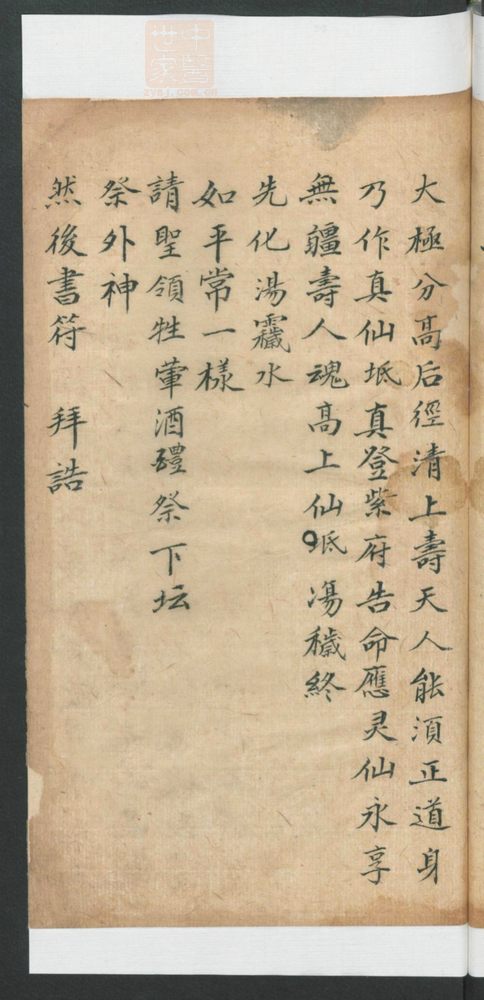 大極分高后徑清上壽天人能須正道身
乃作真仙坻真登紫府告命應灵仙永享
無疆壽人魂高上仙坻湯穢終
先化湯水
如平常一様
請聖領牲葷酒醴祭下坛
祭外神
然後書符 拜誥
中醫世家
zysj.com.cn